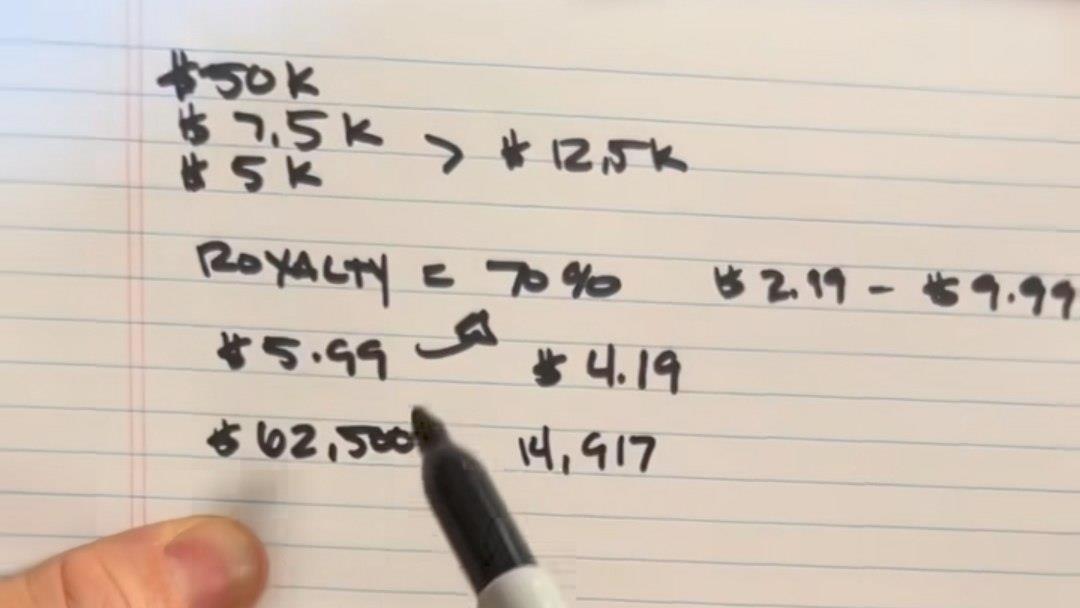 $50K
$7.5K > $12.5K
$5K
ROYALTY = 70% $2.99 - $9.99
$5.99 $4.19
$62,500 14,917